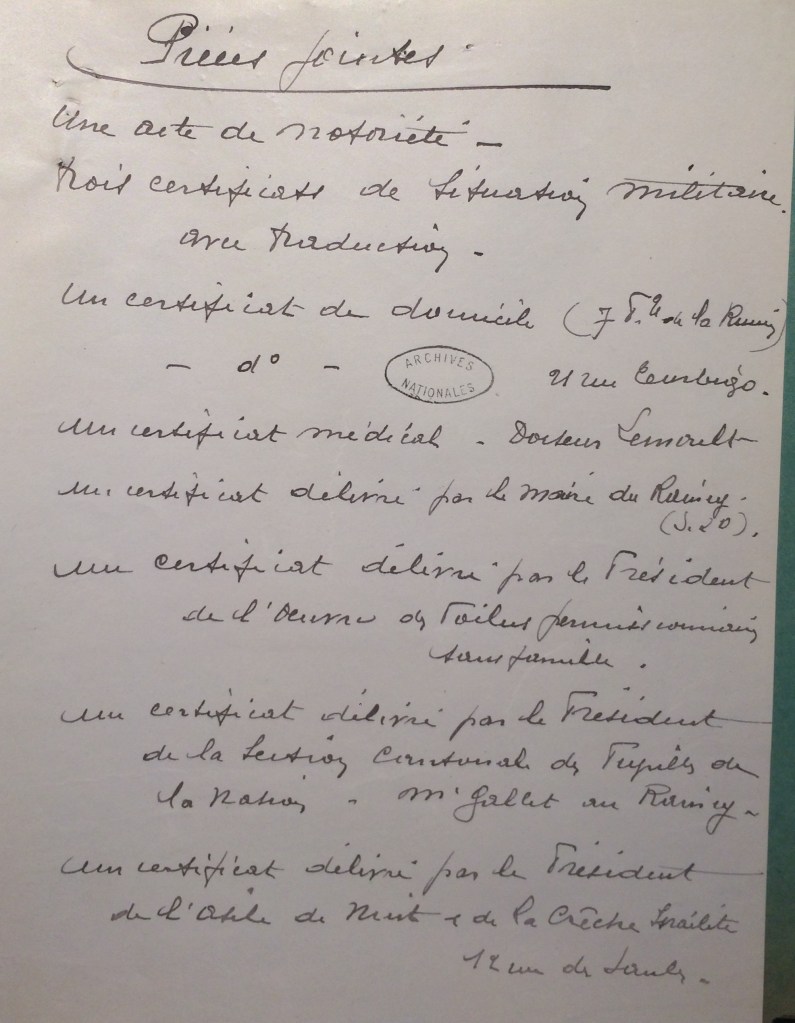 Pièces jointes
Une acte de notoriété -
trois certificats de situation militaire.
avec traduction -
Un certificat de domicile (7 de la
- d° -
ARCHIVES
NATIONALES
21 rue Turbigo.
un certificat médical - Docteur Lemoult
un certificat délivré par le Maire du Raincy.
(S. &O).
un certificat délivré par le Président
de l'Oeuvre des Poilus permissionnaires
sans famille.
un certificat délivré par le Président
de la Section Cantonale des Pupilles de
la Nation - Mr Gallet au Raincy -
un certificat délivré par le Président
de l'Asile de Nuit & de la Crèche Israélite
12 rue des Saules -